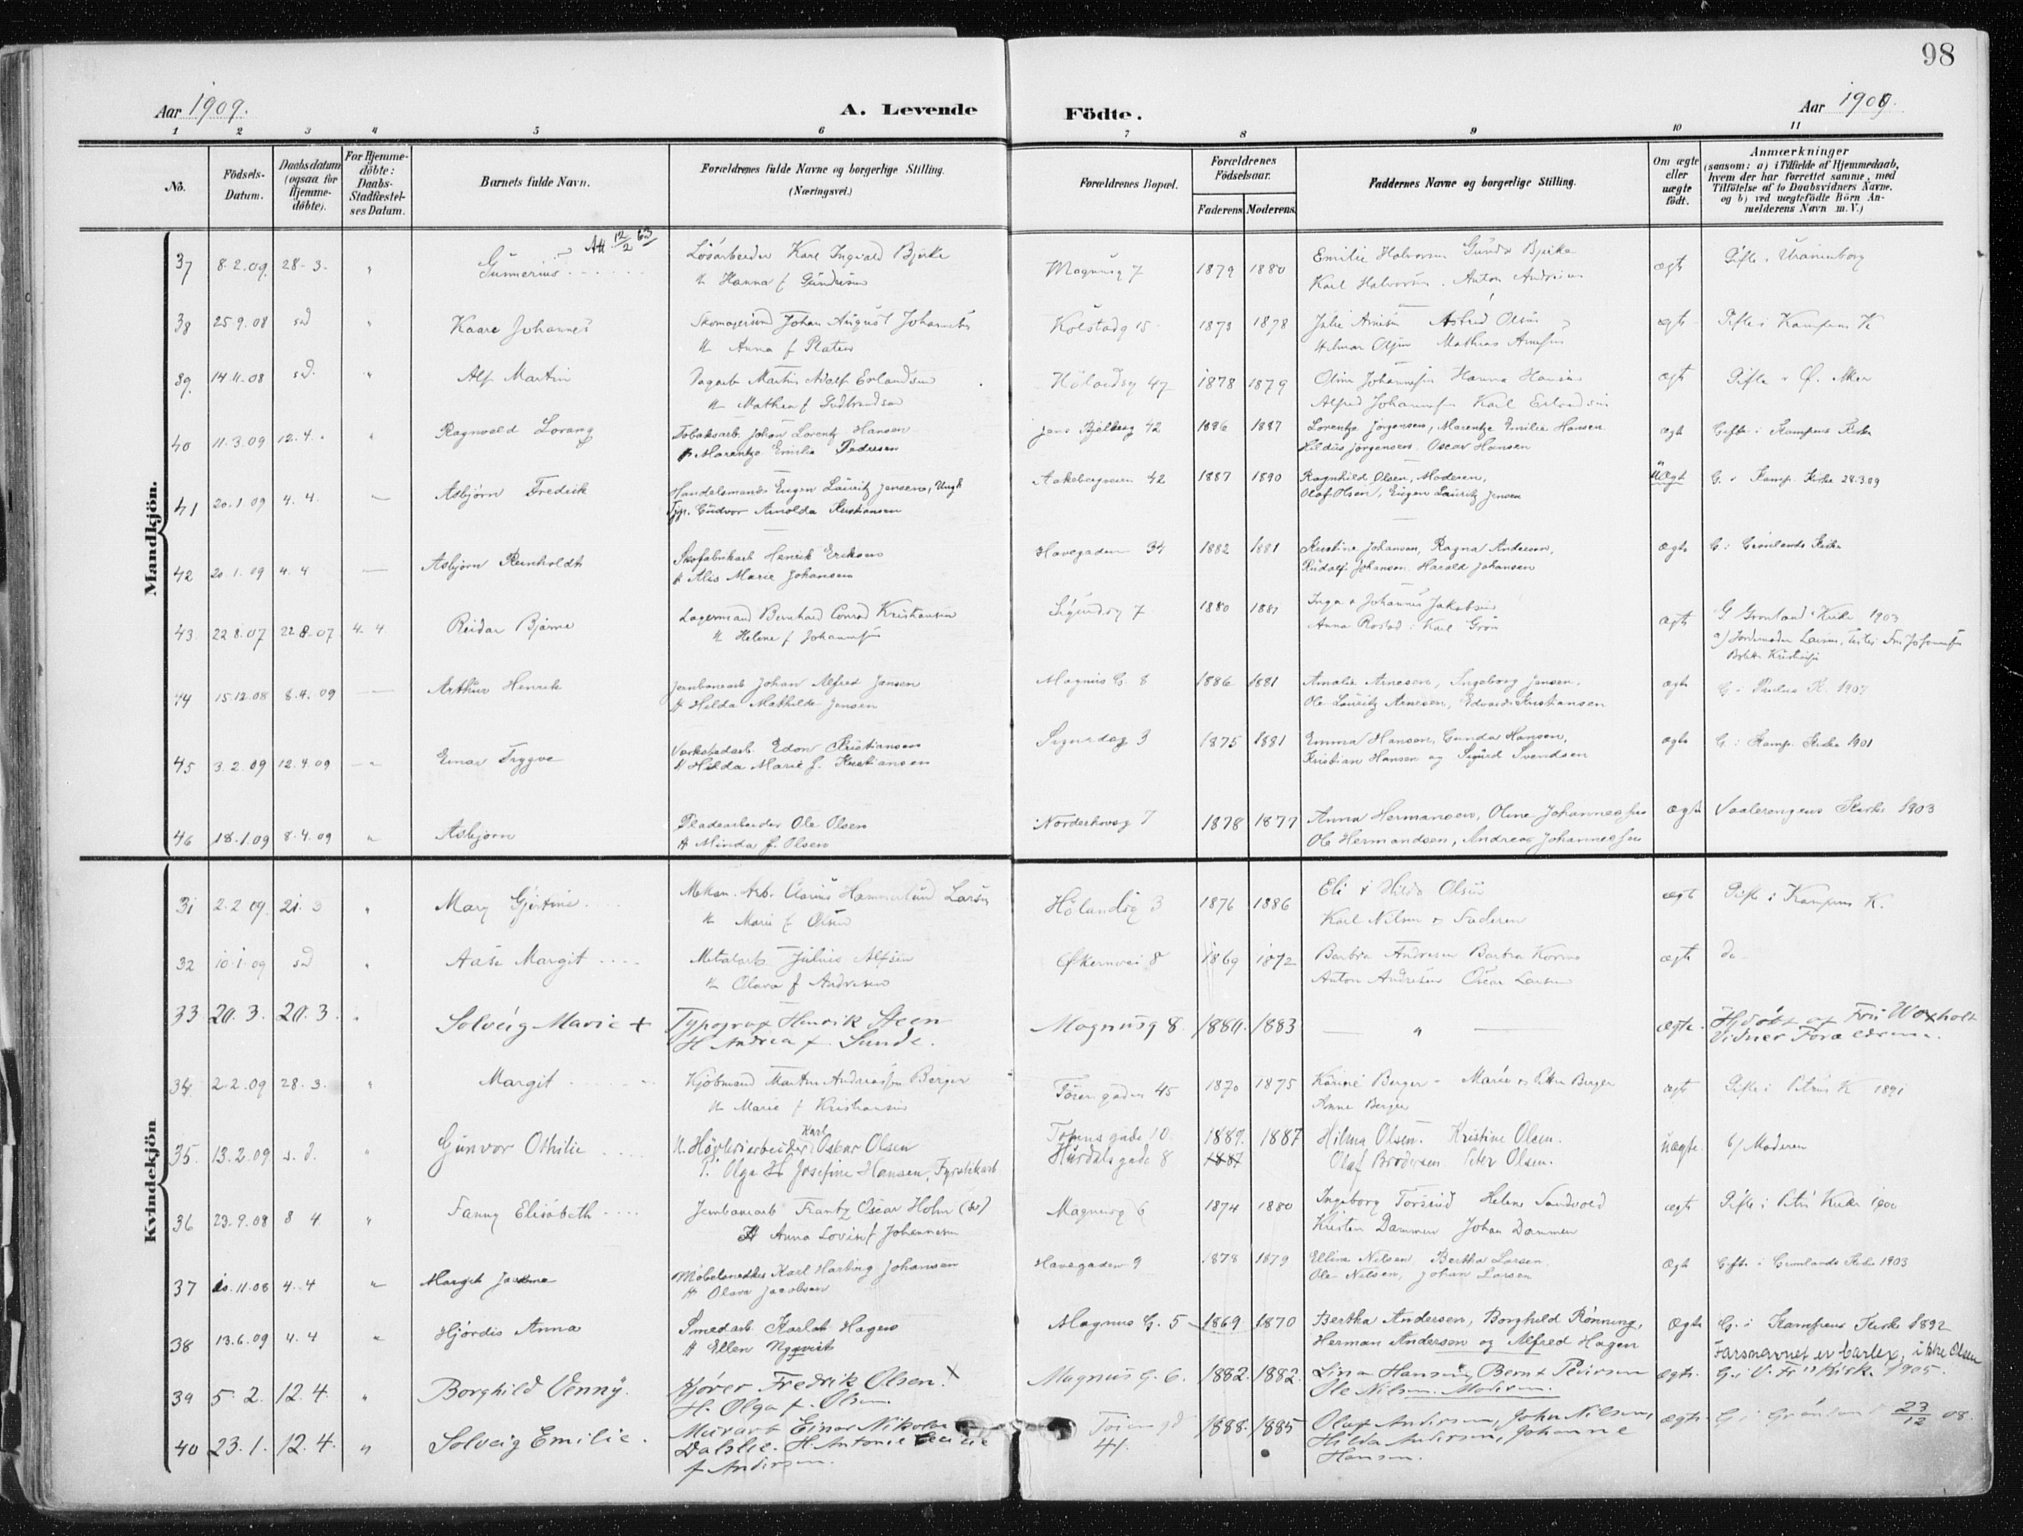 98
Aar 1909.
A. Levende Födte.
Aar 1909.
1 2 3 4 5 6 7 8 9 10 11
No.
Födsels-Datum.
Daabsdatum (ogsaa for Hjemme-döbte).
For Hjemme-döbte: Daabs-Stadfæstel-ses Datum.
Barnets fulde Navn.
Forældrenes fulde Navne og borgerlige Stilling. (Næringsvei.)
Forældrenes Bopæl.
Forældrenes Födselsaar.
Faderens Moderens.
Faddernes Navne og borgerlige Stilling.
Om ægte eller uægte födt.
Anmærkninger
(saasom: a) i Tilfælde af Hjemmedaab, hvem der har forrettet samme, med Tilföielse af to Daabsvidners Navne. og b) ved uægtefödte Börn An-melderens Navn m. V.)
Mandkjön.
37 8.2.09. 28-3. " Gunnerius Løsarbeider Karl Ingvald Bjerke Magnusg 7 1879 1880 Emilie Halvorsen Gunda Bjerke ægte Gifte i Uranienborg
Att 12/2 63
H Hanna f Gundersen Karl Halvorsen. Anton Andersen
38 25.9.08 sd " Kaare Johannes Johan August Johannesen Kolstadg 15 1873 1878 Julie Arnesen Astrid Olsen ægte Gifte i Kampens K
H Anna f Platou Hilmar Olsen Mathias Arnesen
39. 14.11.08 sd. " Alf Martin Dagarb Martin Adolf Erlandsen Hölandsg 47 1878 1879 Oline Johannsen Hanna Hansen ægte Gifte i Ø. Aker
H Mathea f Gulbrandsen Alfred Johannsen Karl Erlandsen
40 11.3.09 12.4. " Ragnvald Lorang Tobaksarb. Johan Lorentz Hansen Jens Bjelkesg 42 1886 1887 Lorentze Jørgensen, Marentze Emilie Hansen ægte Gifte i Kampens Kirke
H Marentze Emilie Pedersen Hildus Jørgensen. Oscar Hansen
41 20.1.09 4.4. — Asbjørn Fredrik Handelsmand Eugen Lauritz Jensen, Ungk Aakebergveien 42 1887 1890 Ragnhild Olsen, Moderen, uægte G. i Kamp. Kirke 28.3.09
Gudvor Arnolda Kristiansen Olaf Olsen, Eugen Lauritz Jensen
42 20.1.09 4.4 — Asbjørn Reinholdt Skofabrikarb Henrik Eriksen Havegaden 34 1882 1881 Kristine Johansen, Ragna Andersen, ægte G: Grønlands Kirke
H Alis Marie Johansen Rudolf Johansen. Harald Johansen
43 22.8.07 22.8.07 4.4 Reidar Bjarne Lagermand Bernhard Conrad Kristiansen Sigurdsg 7 1880 1881 Inga & Johannes Jakobsen ægte G Grønland Kirke 1903
H Helene f Johannsen Anna Rostad: Karl Grøn a/ Jordemoder Larsen,
44 15.12.08 8.4.09 — Arthur Henrik Jernbanearb Johan Alfred Jansen Magnus G. 8 1886 1881 Amalie Arnesen, Ingeborg Jensen. ægte G. Paulus K. 1907
H Hilda Mathilde Jensen Ole Lauritz Arnesen, Edvard Kristiansen
45 3.2.09 12.4.09 — Einar Trygve Værkstedarb. Edon Kristiansen Signesdag 3 1875 1881 Emma Hansen, Gunda Hansen, ægte G: Kamp. Kirke 1901
H Hilda Marie f. Kristiansen Kristian Hansen og Sigurd Svendsen
46 18.1.09 8.4.09 " Asbjørn Pladearbeider Ole Olsen Norderhovsg 7 1878 1877 Anna Hermansen, Oline Johannessen ægte Vaalerengens Kirke 1903
H Minda f. Olsen Ole Hermandsen, Andreas Johannessen
Kvindekjön
31 2.2.09. 21.3 " Mary Gjertine Mekan. Arb. Clarius Hammerlund Larsen Hölandsg 3 1876 1886 Eli & Hilda Olsen ægte Gifte i Kampens K.
H Marie f Olsen Karl Nilsen & Faderen
32 10.1.09 sd " Aase Margit Metalarb Julius Alfsen Økernvei 8 1869 1872 Barbra Andresen Barbra Kormo ægte do
H Olava f Andresen Anton Andresen Oscar Larsen
33 20.3. 20.3. " Solveig Marie + Typograf Henrik Steen Magnusg 8. 1880. 1883 — " — ægte Hjdøbt af Fru Woxholt
H Andrea f. Sunde. Vidner Forældrene.
34 2.2.09 28.3. " Margit Kjøbmand Martin Andreassen Berger Tøiengaden 45 1870 1875 Karine Berger - Marie & Petter Berger ægte Gifte i Petrus K 1891
H Marie f Kristiansen Anne Berger
35. 13.2.09 s.d. " Gunvor Othilie U. Høvleriarbeider Karl Oscar Olsen Tøiensgade 10. 1889. 1887 Hilma Olsen. Kristine Olsen. uægte b/ Moderen
P. Olga H Josefine Hansen, Fyrstikarb Hurdalsgade 8 1887 Olaf Brodersen Peter Olsen.
36 23.9.08 8 4 " Fanny Elisabeth Jernbanearb Frantz Oscar Holm (sv) Magnusg 6 1874 1880 Ingeborg Torsrud Helene Sandvold ægte Gifte i Petri Kirke 1900
H Anna Lovise f Johannesen Kristen Dammen Johan Dammen
37 20.11.08 4.4 " Margit Møbelsnedker Karl Harbing Johansen Havegaden 9 1878 1879 Elline Nilsen Bertha Larsen. ægte Gifte i Grønlands Kirke 1903
H Olava Jacobsen Ole Nilsen, Johan Larsen
38 13.6.09 4.4 " Hjørdis Anna Smedarb. Karl Hagen Magnus G. 5 1869 1870 Bertha Andersen, Borghild Rønning, ægte G. i Kampens Kirke 1892
H Ellen Nyqvist Herman Andersen og Alfred Hagen
Farsnavnet er Carlev, ikke Olsen
39 5.2. 12.4. " Borghild Venny. Kjører Fredrik Olsen. x Magnus G. 6. 1882. 1882. Lina Hansen, Bernt Petersen ægte. G. i V. Fri Kirke 1905.
H. Olga f. Olsen. Ole Nilsen. Moderen.
40 23.1. 12.4. " Solveig Emilie. Murarb Einar Nikolai Tøiengd 41. 1888. 1885 Olaf Andersen, John Nilsen, ægte G i Grønland 23/12 08.
Dahlie. H Antonie Emilie Hilda Andersen, Johanne
f Andersen. Hansen.